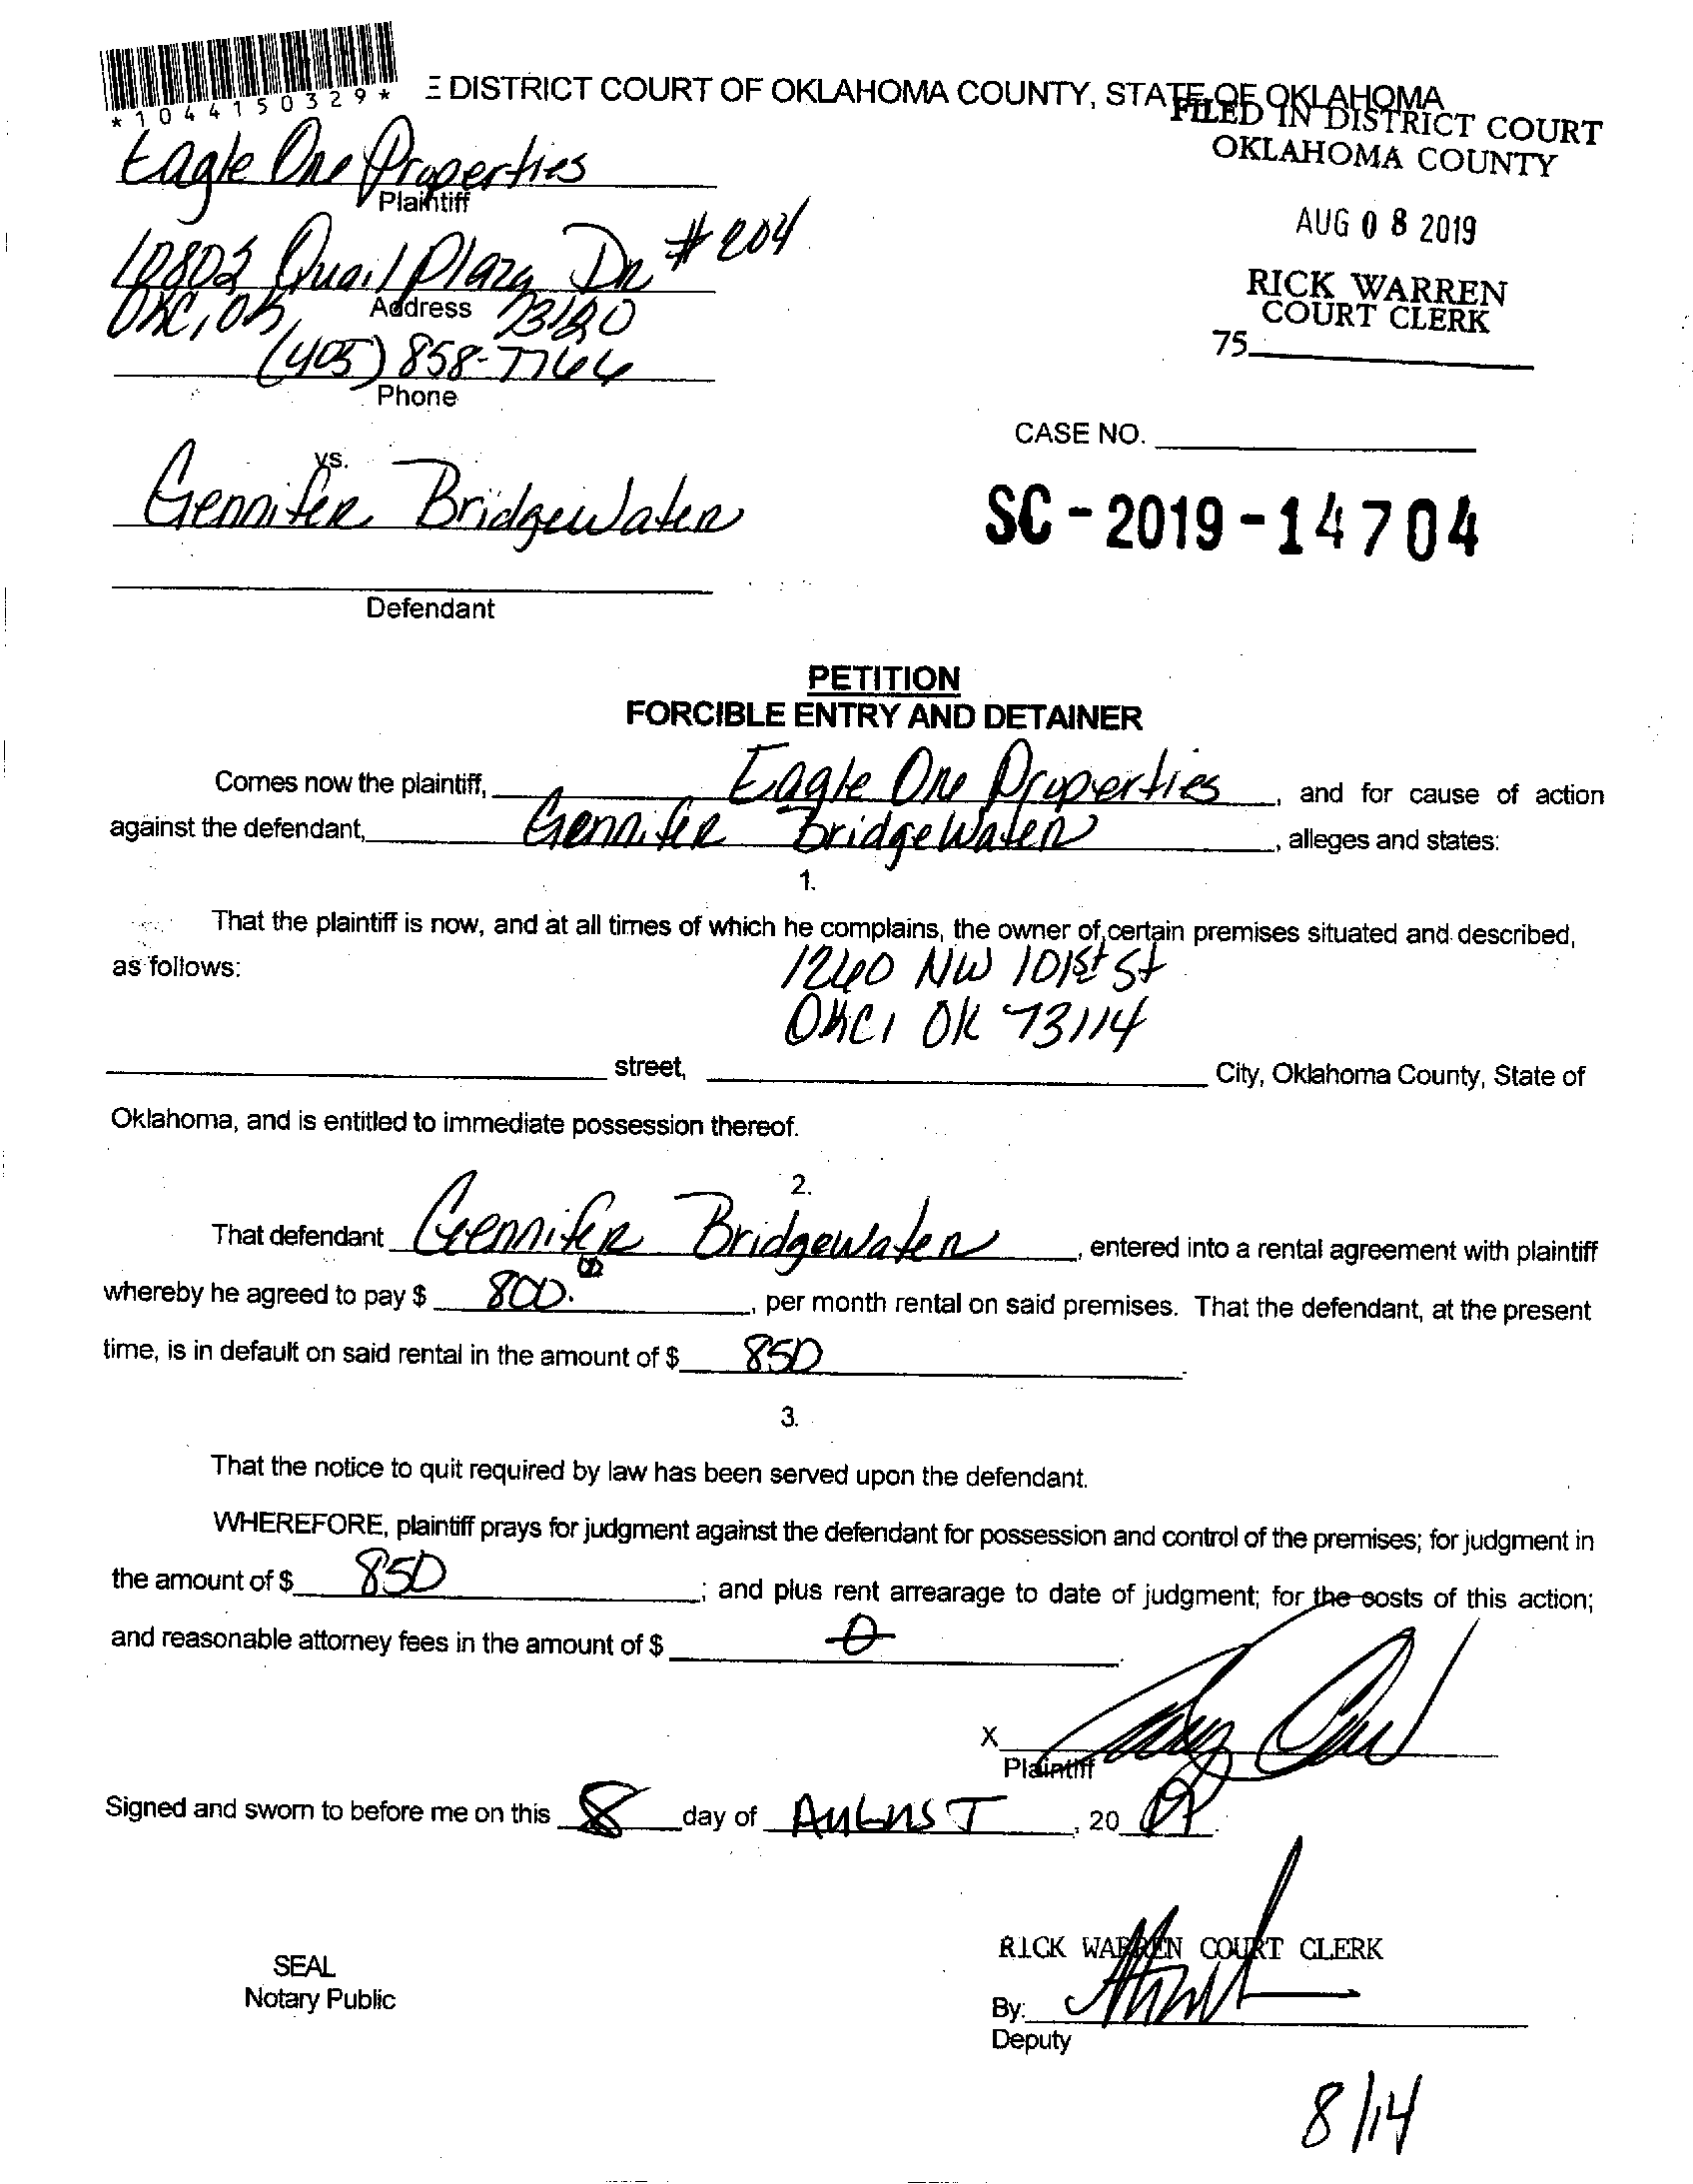 *1044150329*
E DISTRICT COURT OF OKLAHOMA COUNTY, STATE OF OKLAHOMA
FILED IN DISTRICT COURT
OKLAHOMA COUNTY
Eagle One Properties
Plaintiff
AUG 08 2019
10802 Quail Plaza Dr. #204
RICK WARREN
COURT CLERK
OKC, OK, 73120
Address
75
(405) 858-7766
Phone
CASE NO.
vs.
Gennifer Bridgewater
SC-2019-14704
Defendant
PETITION
FORCIBLE ENTRY AND DETAINER
Comes now the plaintiff, Eagle One Properties, and for cause of action
against the defendant, Gennifer Bridgewater, alleges and states:
1.
That the plaintiff is now, and at all times of which he complains, the owner of certain premises situated and described,
as follows: 1260 NW 101st St
OKC, OK 73114
street, City, Oklahoma County, State of
Oklahoma, and is entitled to immediate possession thereof.
2.
That defendant Gennifer Bridgewater, entered into a rental agreement with plaintiff
whereby he agreed to pay $ 800.00, per month rental on said premises. That the defendant, at the present
time, is in default on said rental in the amount of $ 850.
3.
That the notice to quit required by law has been served upon the defendant.
WHEREFORE, plaintiff prays for judgment against the defendant for possession and control of the premises; for judgment in
the amount of $ 850; and plus rent arrearage to date of judgment; for the costs of this action;
and reasonable attorney fees in the amount of $ 0.
X
Plaintiff
Signed and sworn to before me on this 8 day of AUGUST, 20 19.
RICK WARREN COURT CLERK
SEAL
Notary Public
By:
Deputy
8/14